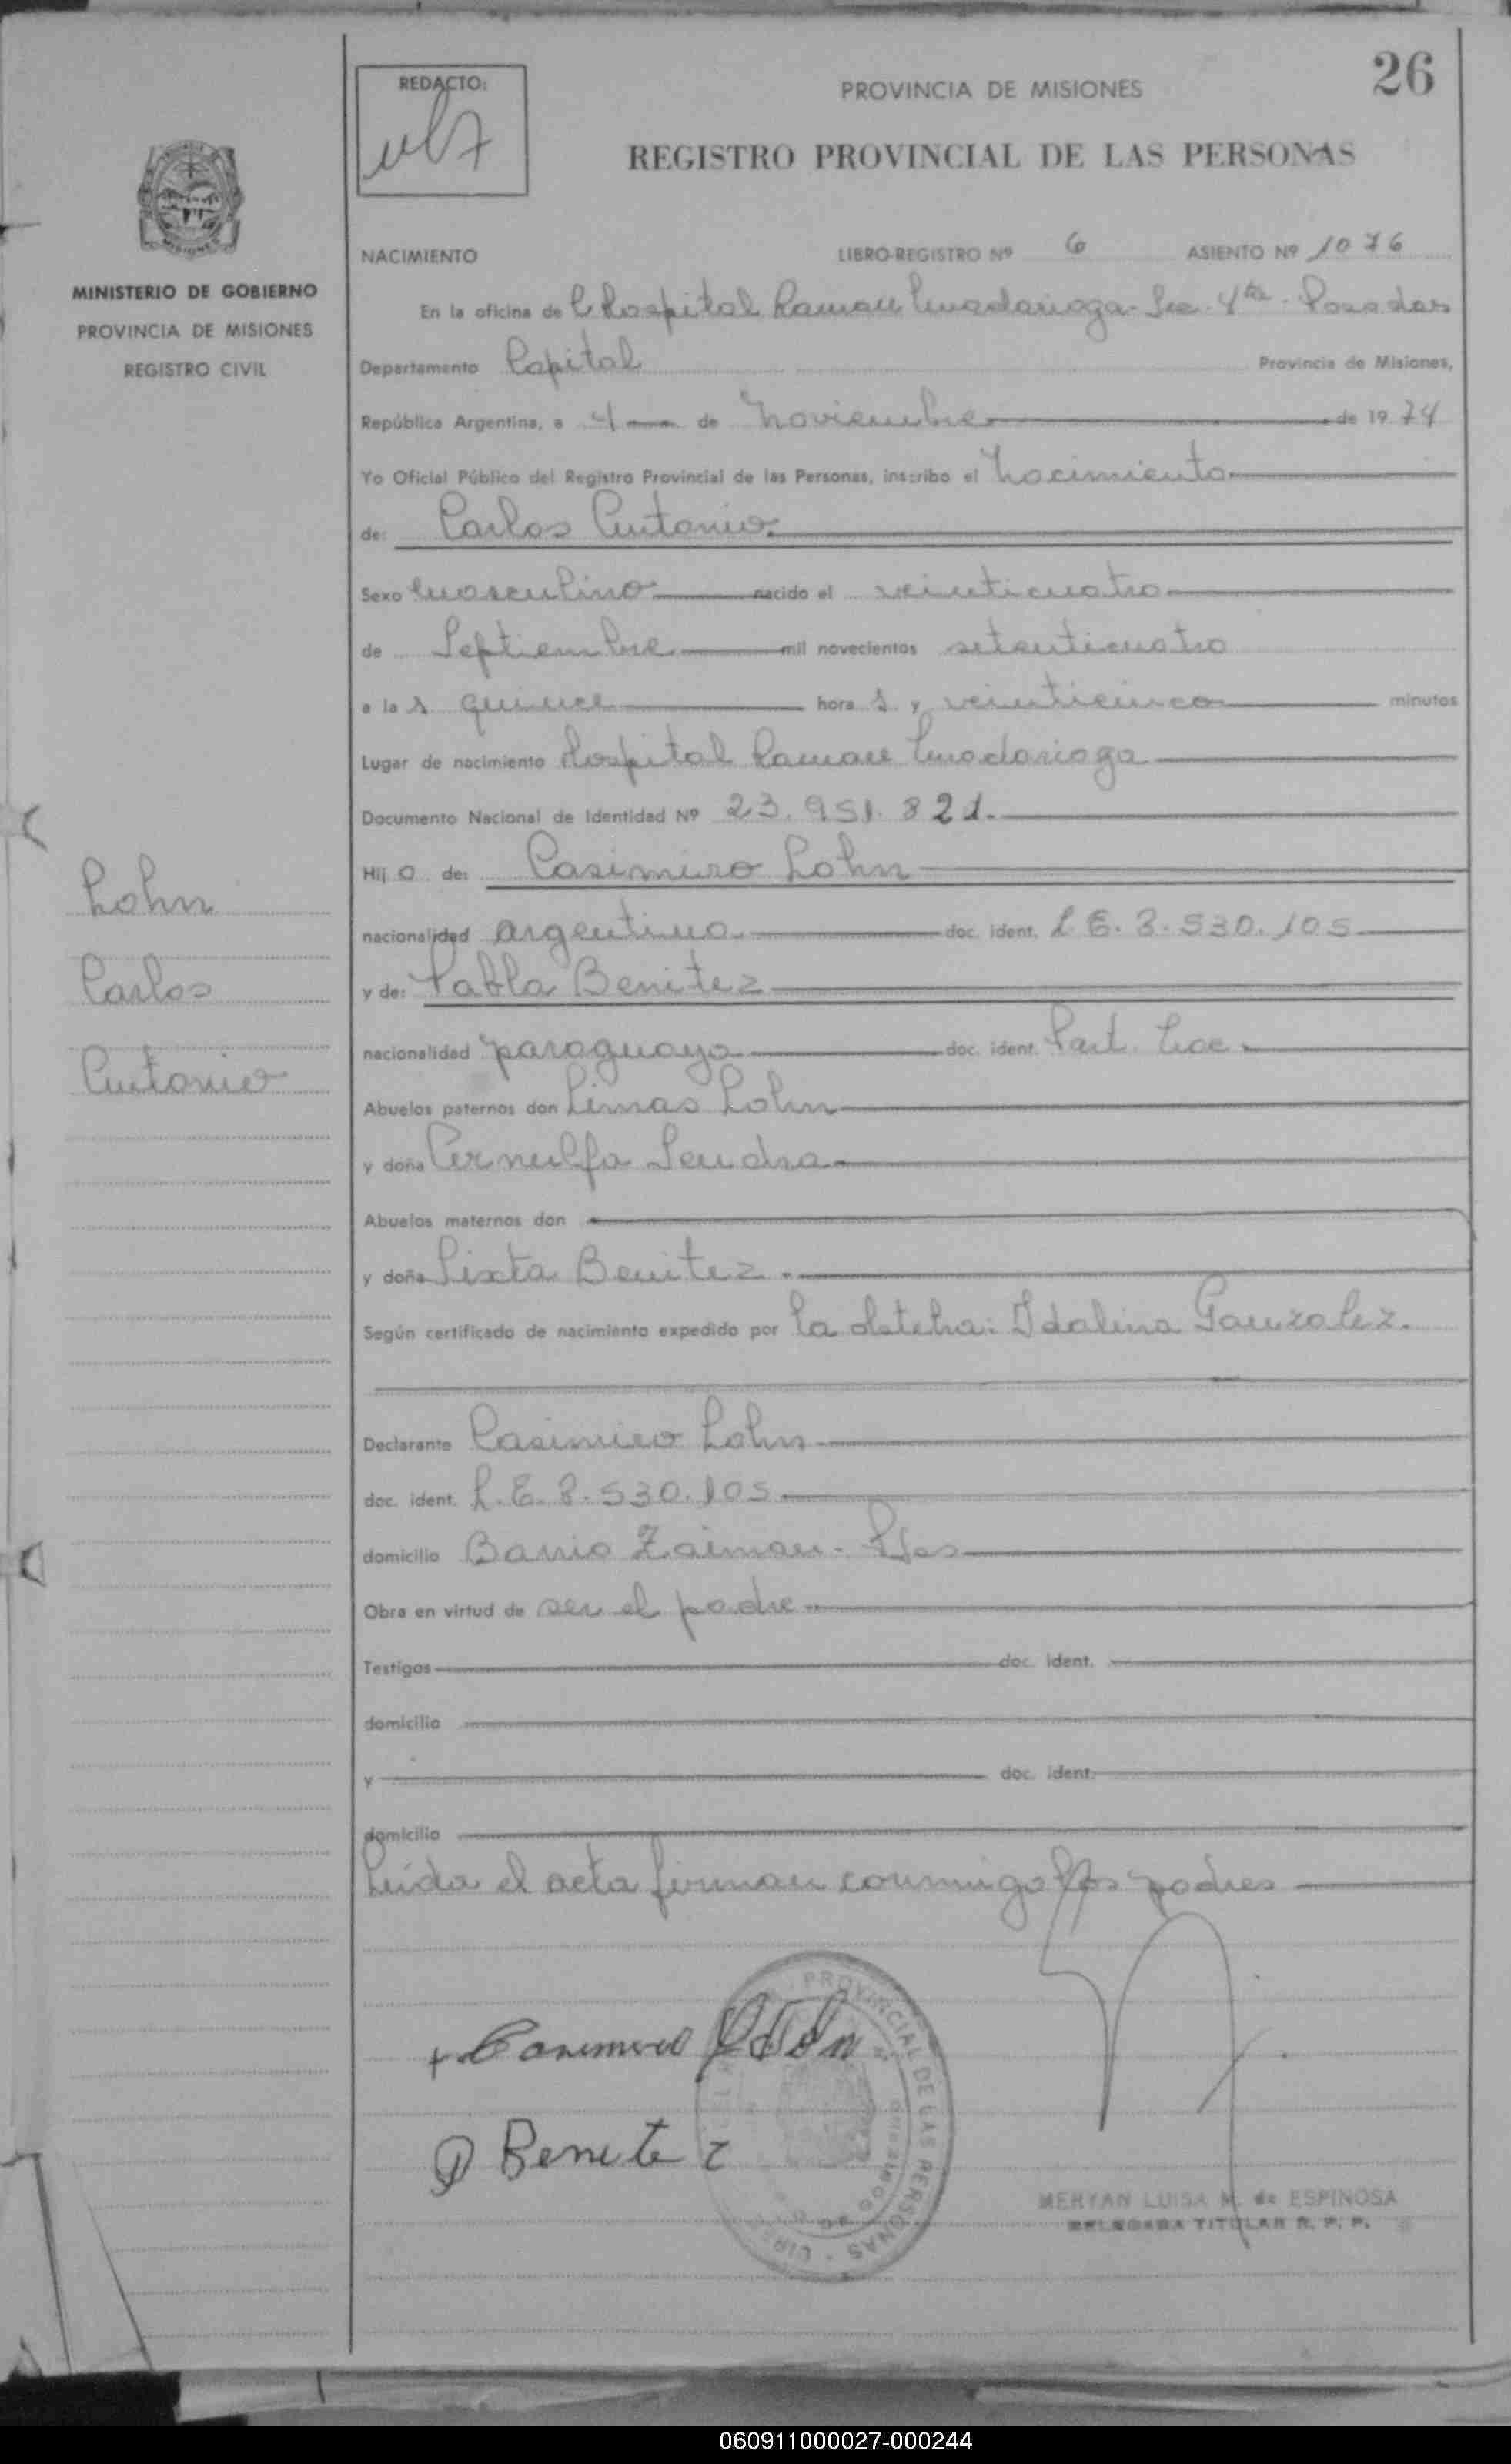 26
REDACTO:
PROVINCIA DE MISIONES
REGISTRO PROVINCIAL DE LAS PERSONAS
MINISTERIO DE GOBIERNO
PROVINCIA DE MISIONES
REGISTRO CIVIL
NACIMIENTO LIBRO-REGISTRO Nº 6 ASIENTO Nº 1076
En la oficina de Hospital Ramon Madariaga - Sec. 4ta - Posadas
Departamento Capital Provincia de Misiones,
República Argentina, a 4 de Noviembre de 1974
Yo Oficial Público del Registro Provincial de las Personas, inscribo el Nacimiento
de: Carlos Antonio
Sexo Masculino nacido el veinticuatro
de Septiembre mil novecientos setenticuatro
a la s quince hora s y veinticinco minutos
Lugar de nacimiento Hospital Ramon Madariaga
Documento Nacional de Identidad Nº 23.951.821.
Hij o de: Casimiro Lohn
nacionalidad argentina doc. ident. L.E. 8.530.105
y de: Pabla Benitez
nacionalidad paraguaya doc. ident. Part. Nac.
Abuelos paternos don Lohn
y doña Arnulfa
Abuelos maternos don
y doña Sixta Benitez.
Según certificado de nacimiento expedido por la obstetra: Idalina Gonzalez.
Declarante Casimiro Lohn
doc. ident. L.E. 8.530.105
domicilio Barrio Zaiman - Pdas
Obra en virtud de ser el padre
Testigos doc. ident.
domicilio
y doc. ident.
domicilio
Leida el acta firman conmigo los padres
Lohn
Carlos
Antonio
+ Casimiro Lohn
P Benitez
PROVINCIAL DE LAS PERSONAS
MERYAN LUISA M. de ESPINOSA
DELEGADA TITULAR R. P. P.
060911000027-000244